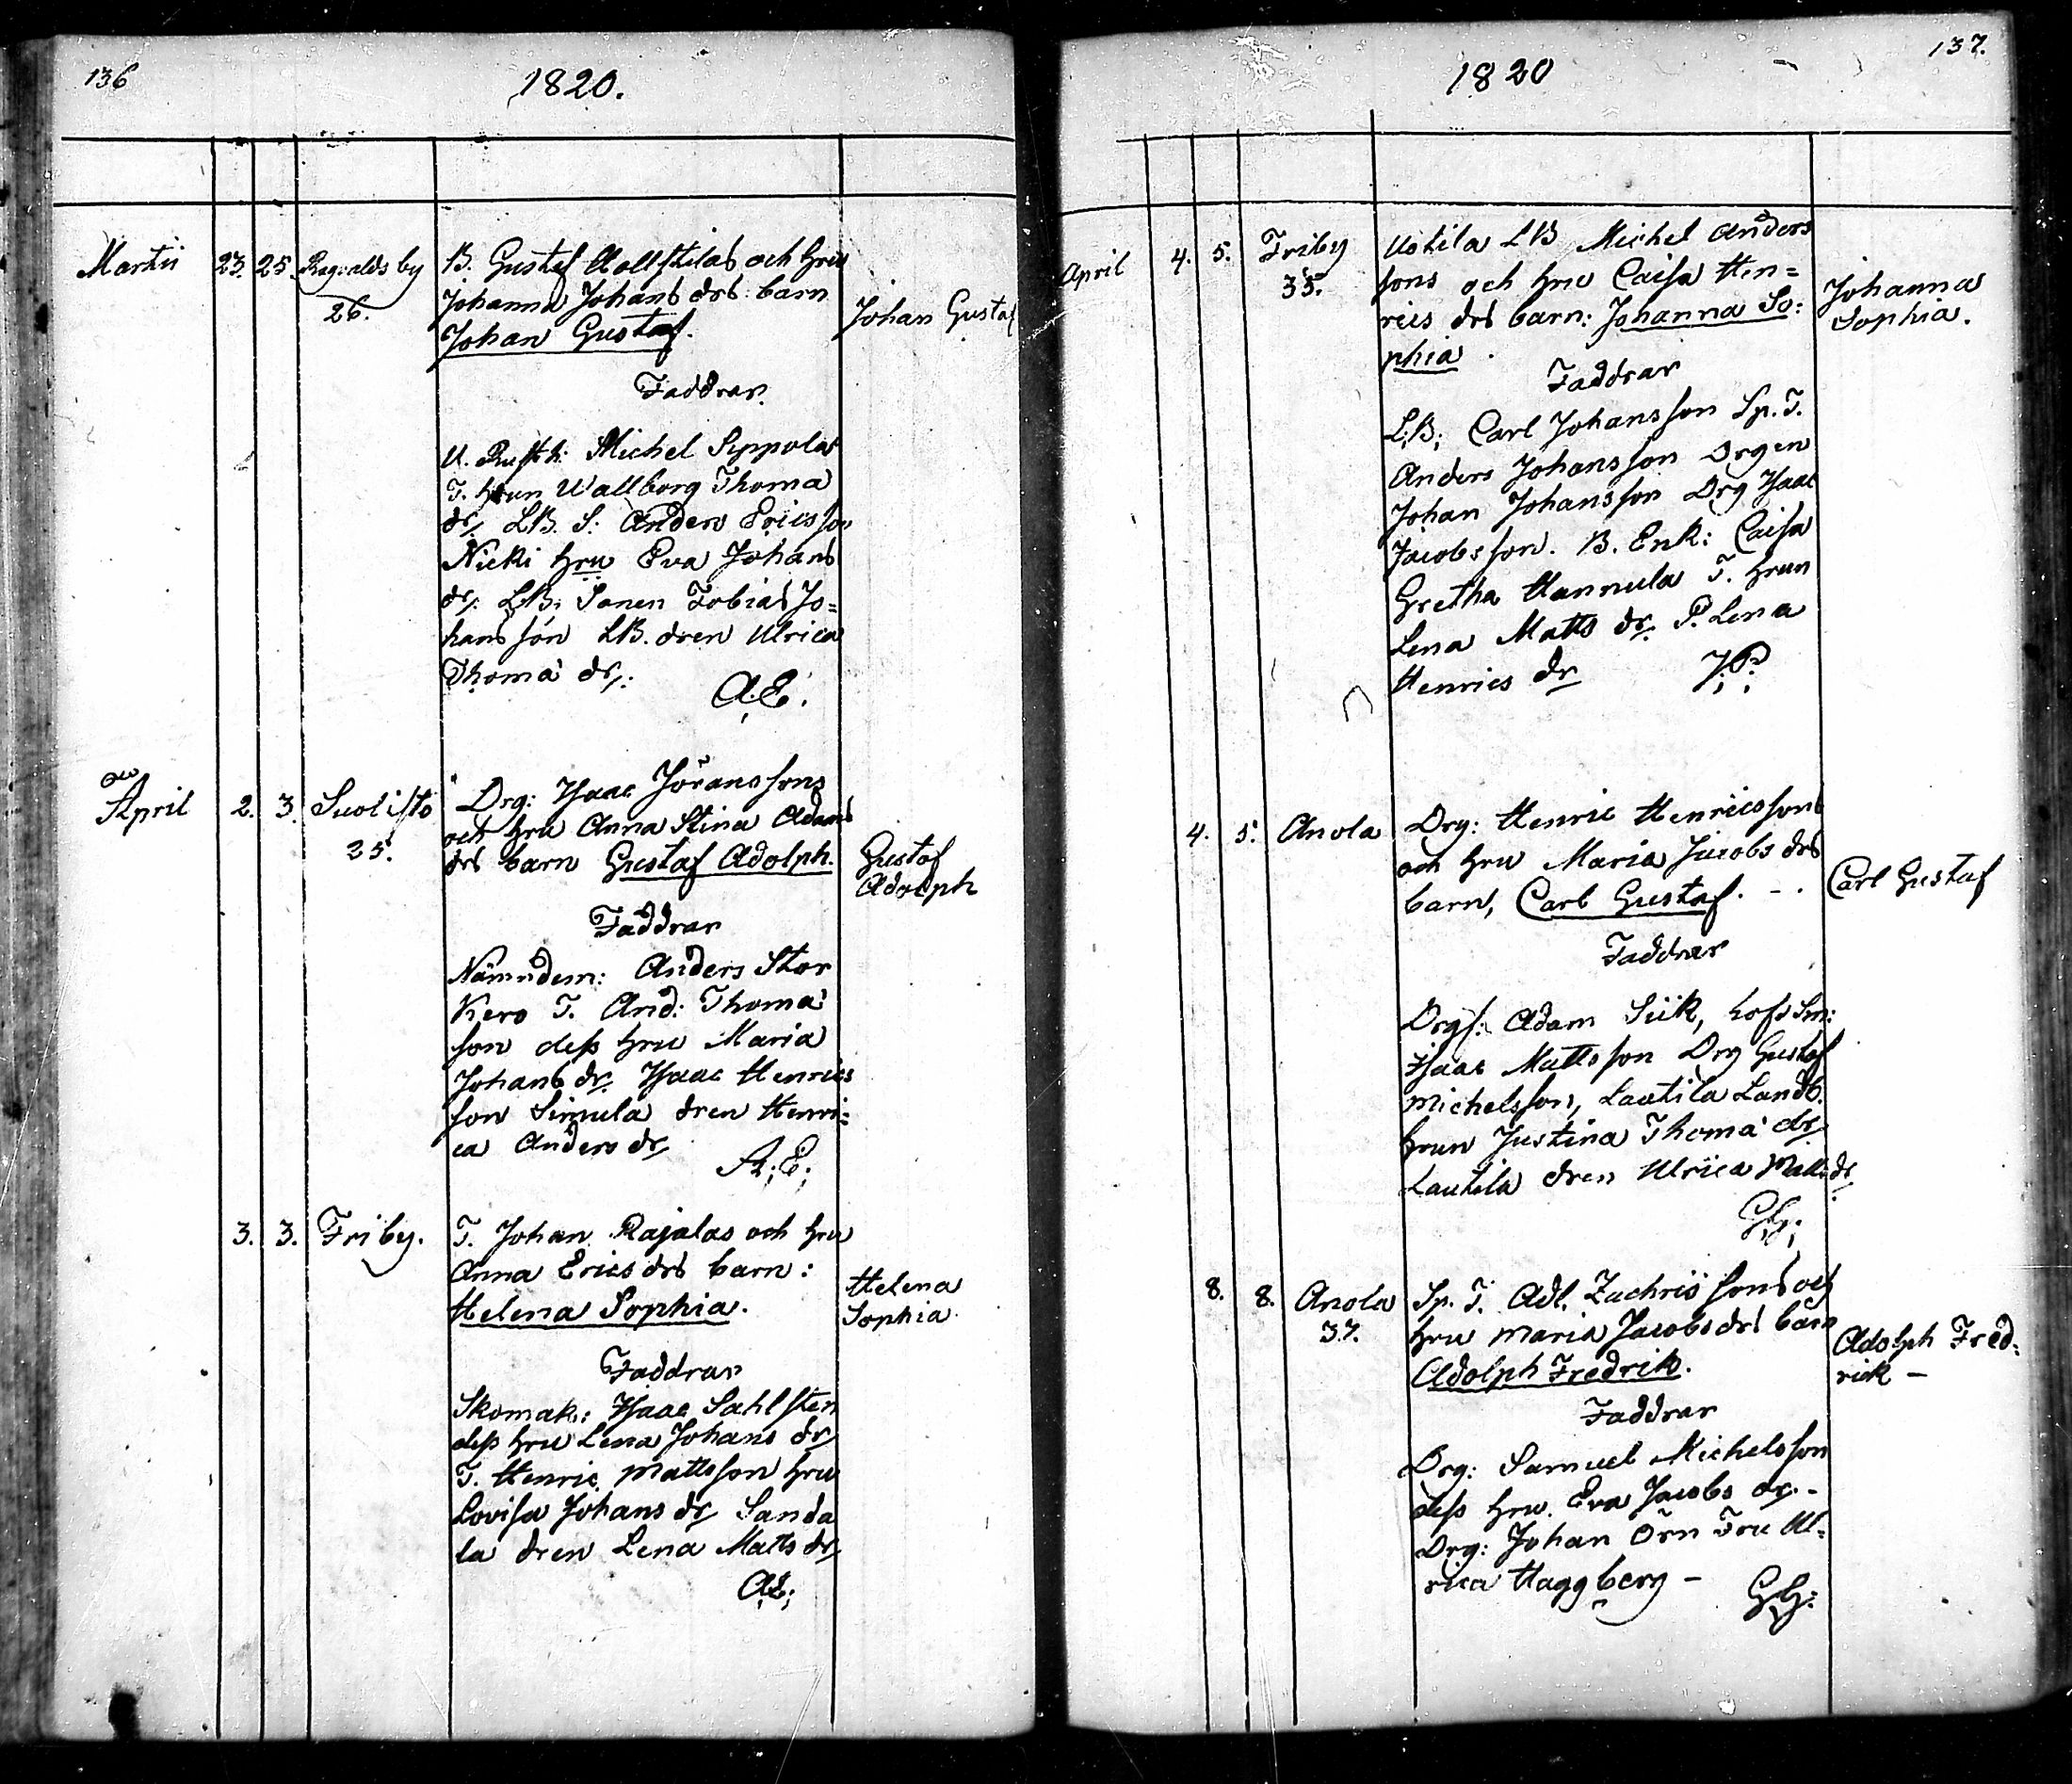 136
1820.
Martii 23. 25. Ragvalds by
26.
B. Gustaf och hru
Johanna Johans drs barn
Johan Gustaf.
Johan Gustaf
Faddrar.
U. Rusth: Michel Sippolas
T. hrun Wallborg Thomæ
dr, LB. S: Anders Ericsson
Nicki hru Eva Johans
dr, LB: Sonen Tobias Jo=
hansson LB. dren Ulrica
Thomæ dr,:
A.E.
April 2. 3. Suolisto
25.
Drg: Isaac Jöranssons
och hru Anna Stina Adams
drs barn Gustaf Adolph.
Gustaf
Adolph
Faddrar
Nämndem: Anders Stor
Kero T. And: Thomæ
son dess hru Maria
Johans dr, Isaac Henrics
son Simula dren Henri=
ca Anders dr,
A.E.
3. 3. Friby.
T. Johan Rajalas och hru
Anna Erics drs barn:
Helena Sophia.
Helena
Sophia.
Faddrar
Skomak: Isaac Sahlsten
dess hru Lena Johans dr,
T. Henric Mattsson hru
Lovisa Johans dr, Sanda
la dren Lena Matts dr,
A.E.
137.
1820
April 4. 5. Friby
35.
Uotila LB Michel Anders
sons och hru Caisa Hen=
rics drs barn: Johanna So:
phia.
Johanna
Sophia.
Faddrar
L.B; Carl Johansson Sp. T.
Anders Johansson Drgen
Johan Johansson Drg Isaac
Jacobsson. B. Enk: Caisa
Gretha Hannula T. hrun
Lena Matts dr, P. Lena
Henrics dr
4. 5. Anola
Drg: Henric Henricssons
och hru Maria Jacobs drs
barn, Carl Gustaf. - .
Carl Gustaf
Faddrar
Drgs: Adam Siik, hofs Sm:
Isaac Mattsson Drg Gustaf
Michelsson, Lautila Landb.
hrun Justina Thomæ dr,
Lautila dren Ulrica Matts dr,
G.G.
8. 8. Anola
37.
Sp. T. Adl. Zachrissons och
hru Maria Jacobs drs barn
Adolph Fredrik.
Adolph Fred:
rick -
Faddrar
Drg: Samuel Michelsson
dess hru Eva Jacobs dr. -
Drg: Johan Örn Fru Ul=
rica Haggberg -
G.G.